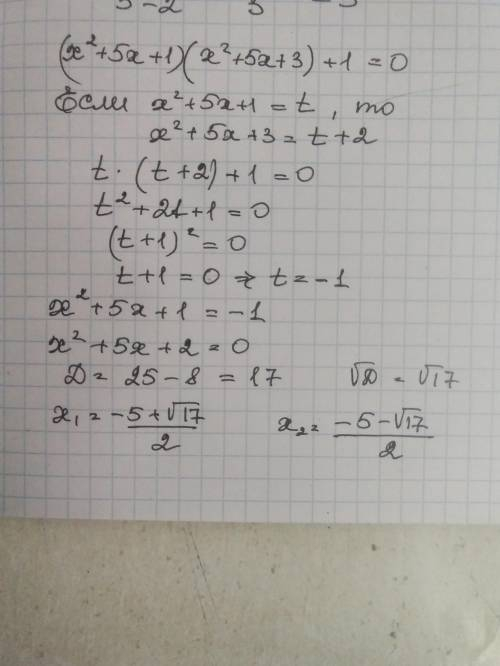 5-2 3 -5
(x²+5x+1)(x²+5x+3)+1=0
Если x²+5x+1=t, то
x²+5x+3=t+2
t·(t+2)+1=0
t²+2t+1=0
(t+1)²=0
t+1=0 → t=-1
x²+5x+1=-1
x²+5x+2=0
D=25-8=17 √D=√17
x₁=(-5+√17)/2 x₂=(-5-√17)/2